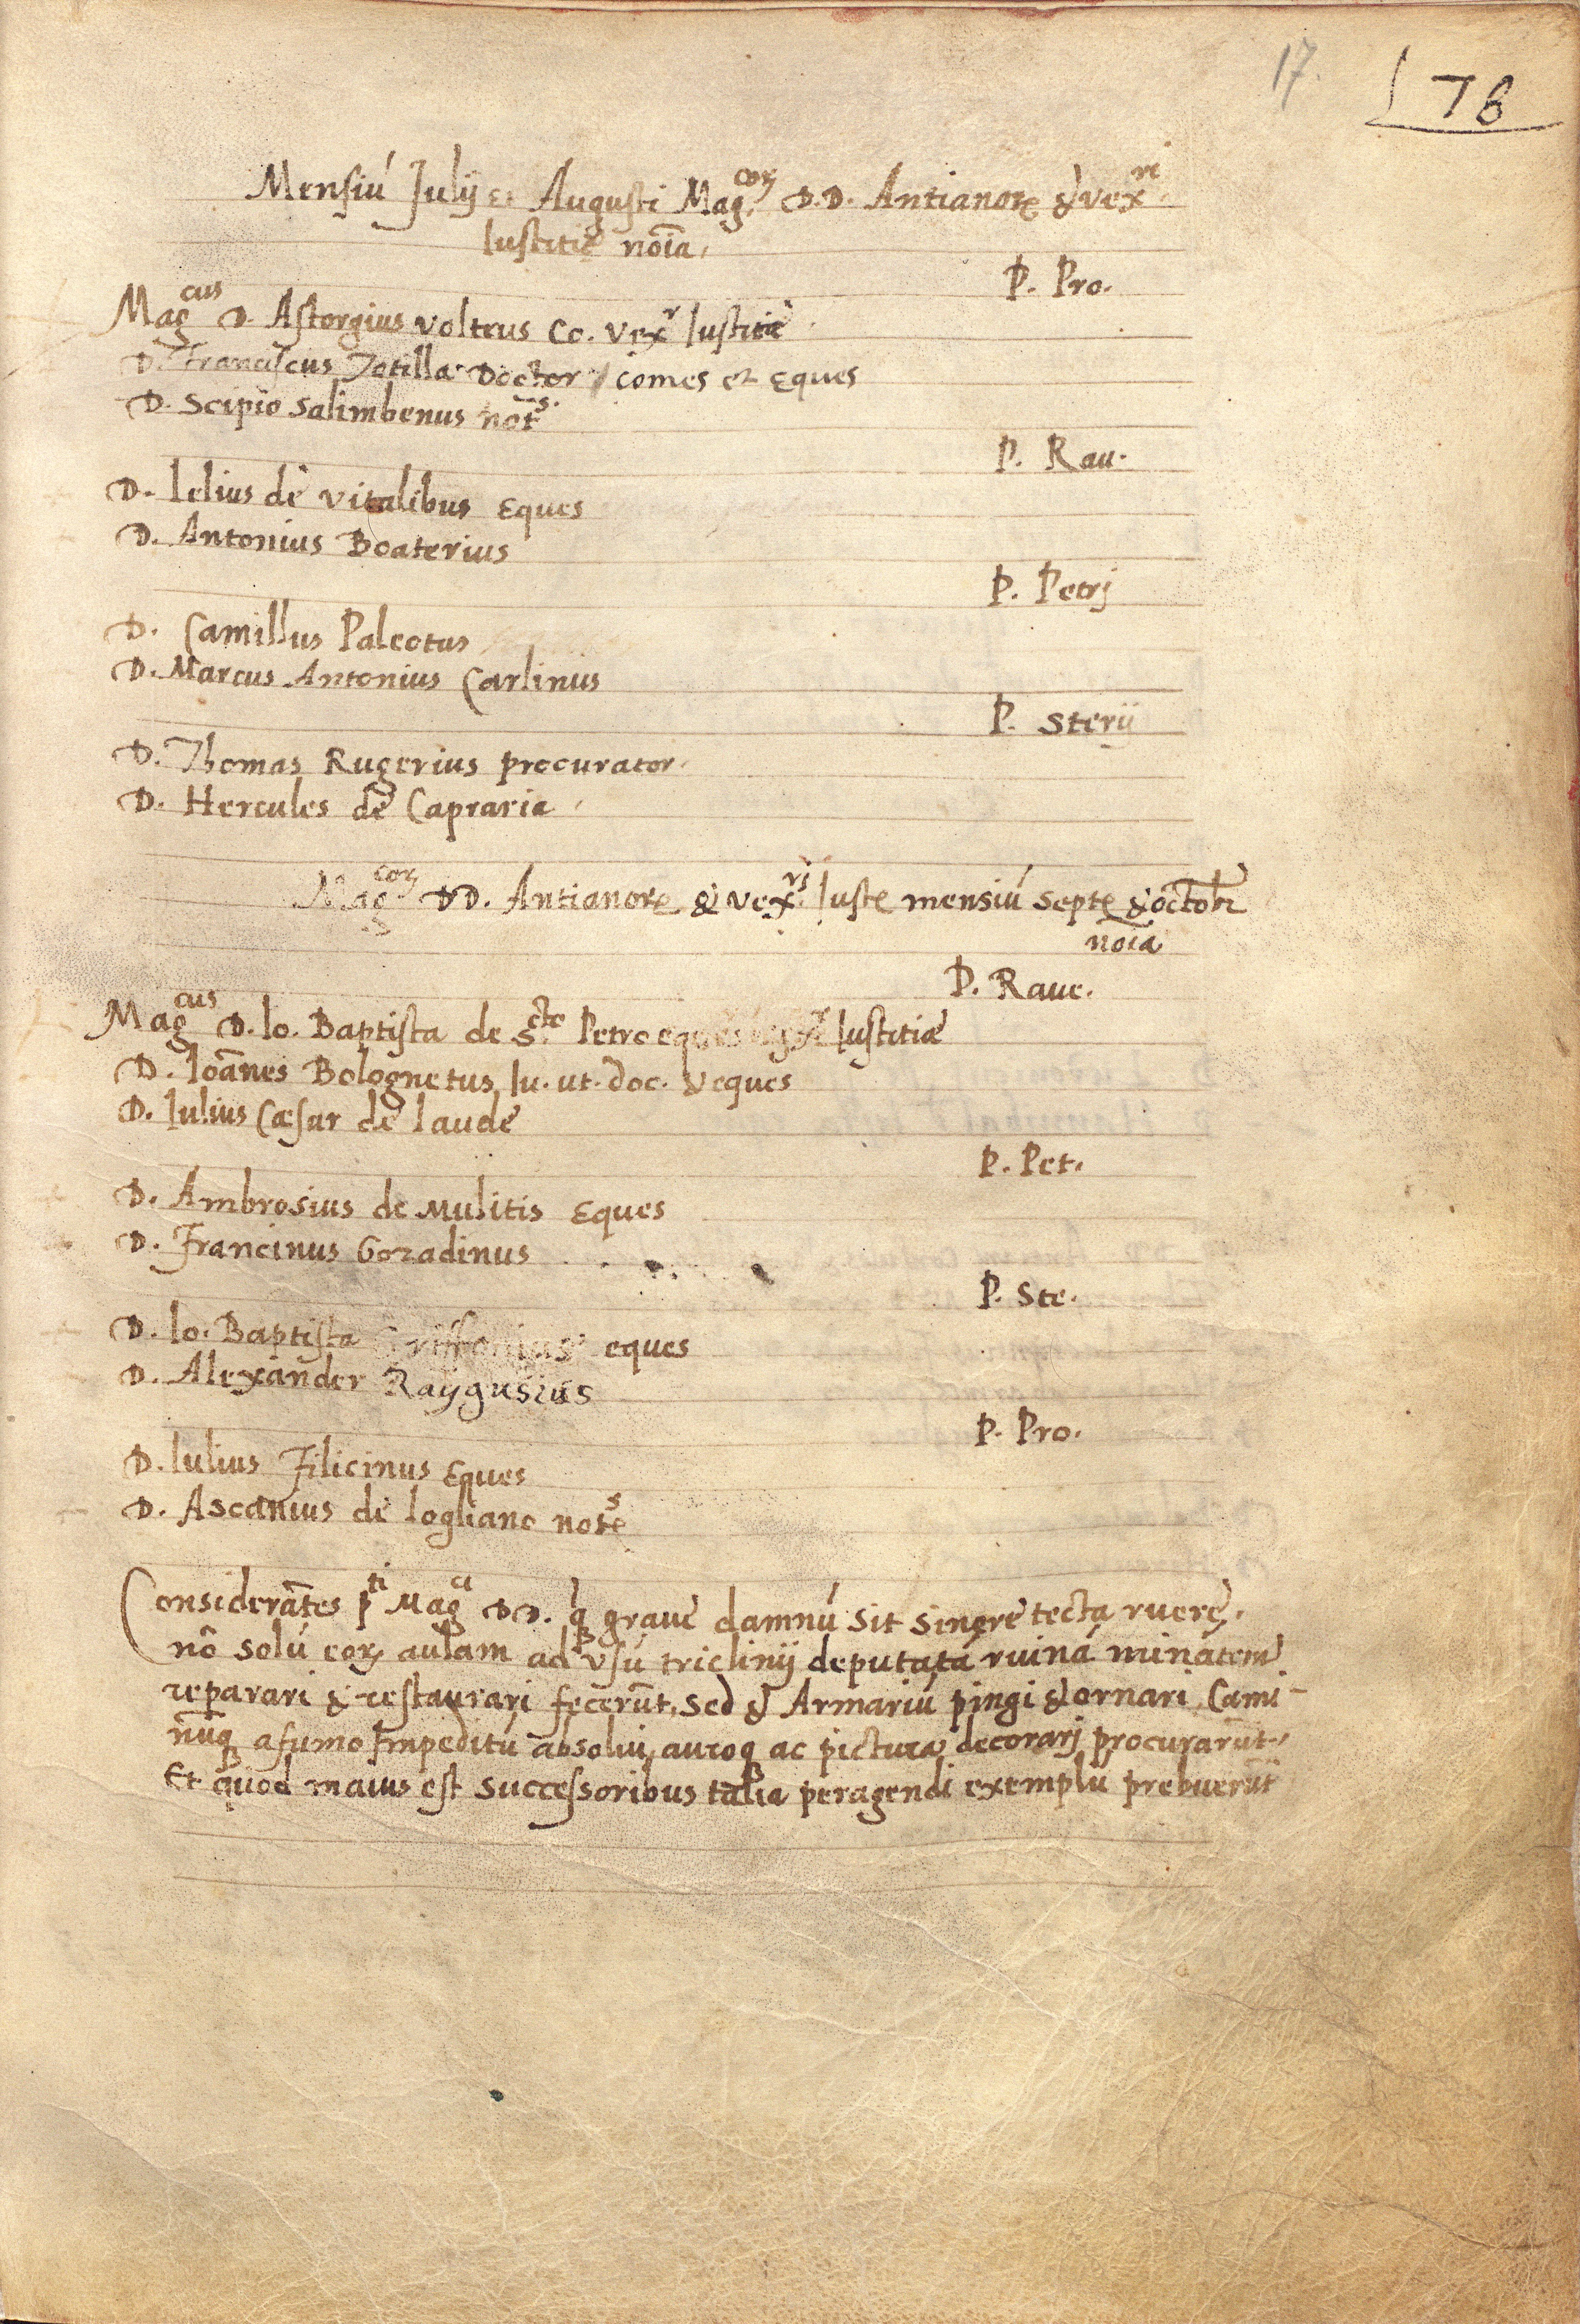 17.
78
Mensiú Julij et Augusti Mag.coꝝ D.D. Antianorꝫ & vexri
Iustitię noīa.
P. Pro.
Magcus D. Astorgius voltus Co. vexr Iustitiæ
D. Franciscus Doctor / comes et Eques
D. Scipio Salimbenus nots.
P. Rau.
D. Lelius de vitalibus Eques
D. Antonius Boaterius
P. Petrj
D. Camillus Paleotus
D. Marcus Antonius Carlinus
P. Sterij
D. Thomas Rugerius procurator.
D. Hercules de Capraria
Magcoꝝ DD. Antianorꝫ & vexrj Iustę mensiú Septę & octobr
noīa
P. Raue.
Magcus D. Io. Baptista de Scto Petro eques vexr Iustitiæ
D. Ioānes Bolognetus Iu. ut. doc. & eques
D. Iulius Cæsar de laude
P. Pet.
D. Ambrosius de Mulitis Eques
D. Francinus Gozadinus
P. Ste.
D. Io. Baptista Griffonius eques
D. Alexander Raygusius
P. Pro.
D. Iulius Filicinus Eques
D. Ascanius de logliano notęs
Considerātes pti Magci DD. q graue damnú sit sinere tecta ruere,
nō solú eoꝝ aulam ad vsú triclinij deputatá ruiná minátem
reparari & restaurari fecerūt, sed & Armariú pingi & ornari, Cami-
nūqꝫ a fumo Impeditú absolui, auroqꝫ ac pictura decorarj procurarūt,
Et quod maius est successoribus talia peragendi exemplú prebuerūt